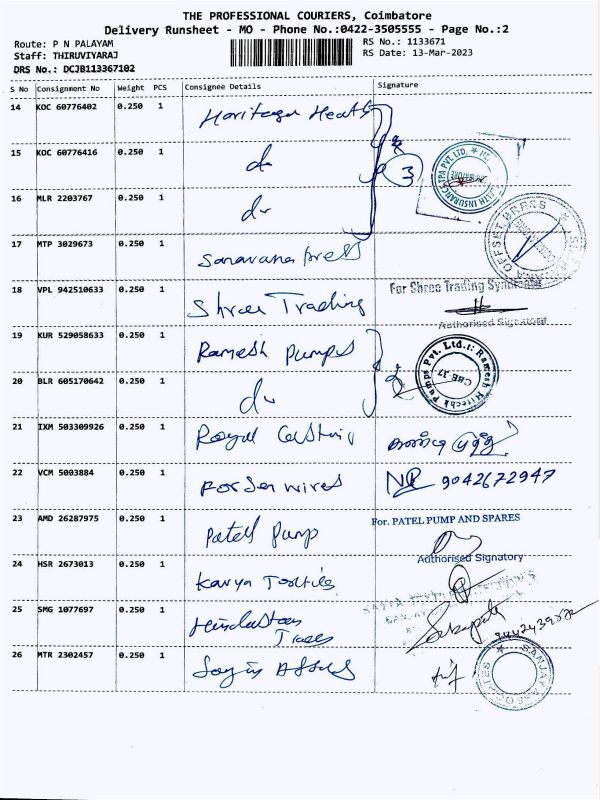 THE PROFESSIONAL COURIERS, Coimbatore
Delivery Runsheet - MO - Phone No.:0422-3505555 - Page No.:2
Route: P N PALAYAM
RS No.: 1133671
Staff: THIRUVIYARAJ
RS Date: 13-Mar-2023
DRS No.: DCJB113367102
S No Consignment No Weight PCS Consignee Details Signature
14 KOC 60776402 0.250 1 Heritage Heath
15 KOC 60776416 0.250 1 do 3
16 MLR 2203767 0.250 1 do
17 MTP 3029673 0.250 1 Saravana press
18 VPL 942510633 0.250 1 Shree Trading For Shree Trading Syndicate
Authorised Signatory
19 KUR 529058633 0.250 1 Ramesh Pumps
20 BLR 605170642 0.250 1 do
21 IXM 503309926 0.250 1 Royal Casting
22 VCM 5003884 0.250 1 wires 9042672947
23 AMD 26287975 0.250 1 Patel Pump For. PATEL PUMP AND SPARES
Authorised Signatory
24 HSR 2673013 0.250 1 Kavya Textiles
25 SMG 1077697 0.250 1 Hindustan
26 MTR 2302457 0.250 1
TPA PVT. LTD.
OFFSET PRESS
Ramesh Hitech Pumps Pvt. Ltd.
CBE-37
SANJAY ASSOCIATES